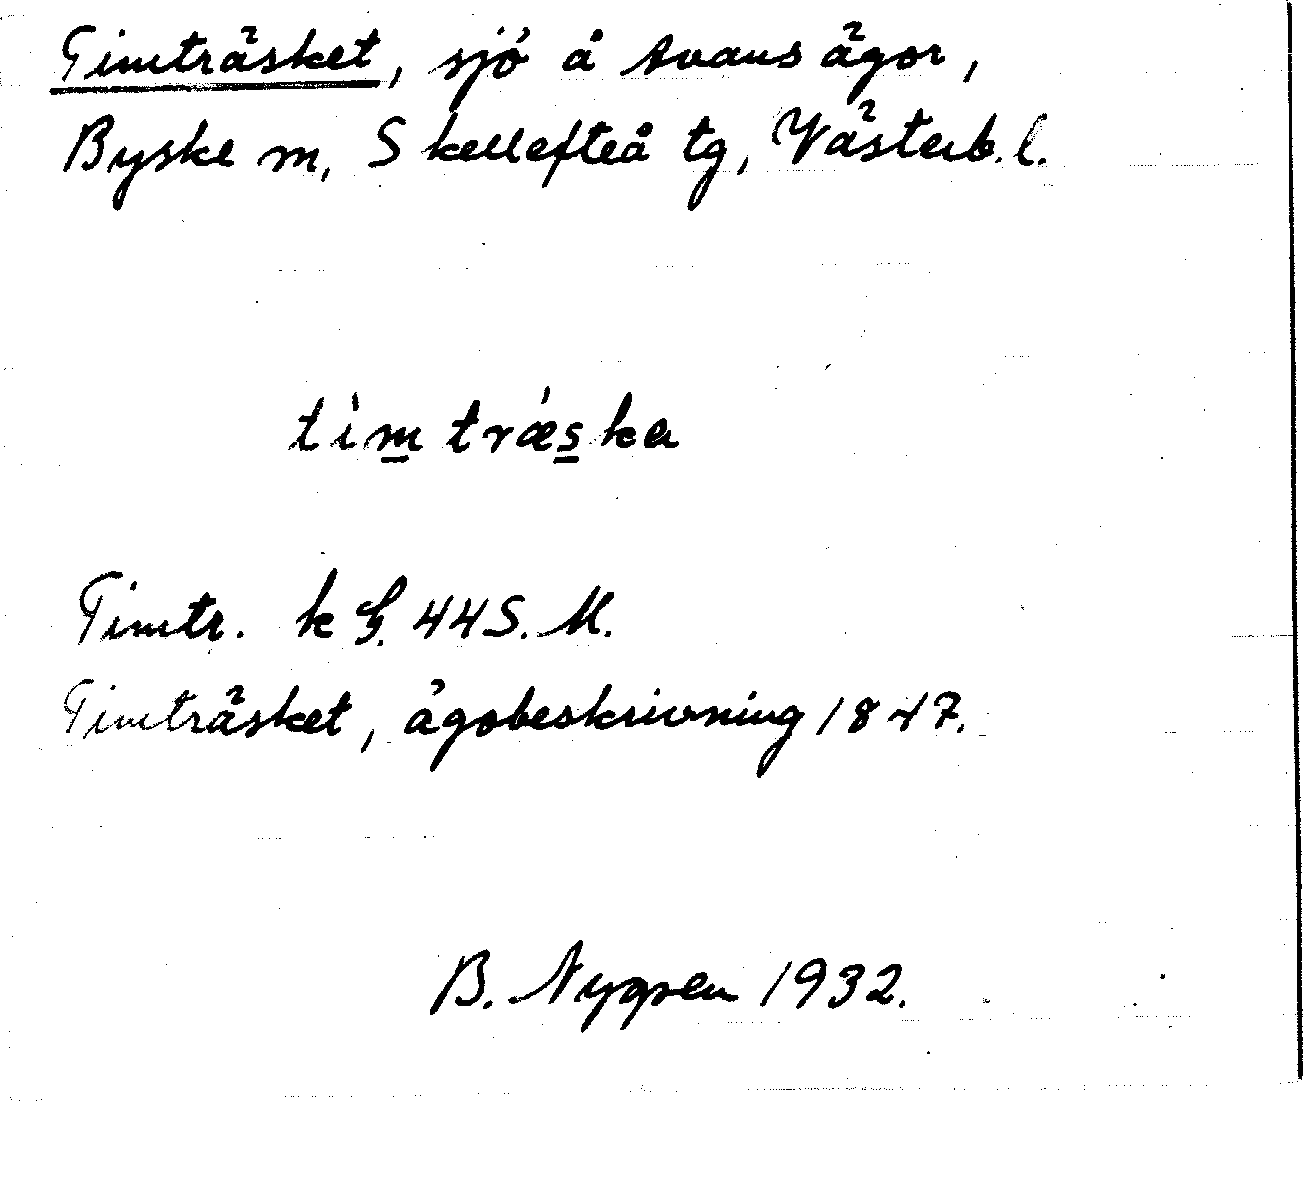 Timträsket, sjö å Avans ägor,
Byske m, Skellefteå tg, Västerb. l.
tìm tráeska
Timtr. k G. 44 S. M.
Timträsket, ägobeskrivning 1847.
B. Nygren 1932.